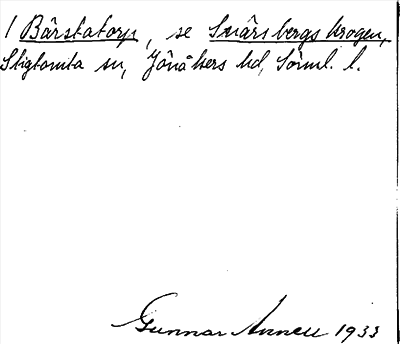 / Bärstatorp, se Snärsbergs krogen,
Stigtomta sn, Jönåkers hd, Sörml. l.
Gunnar 1933